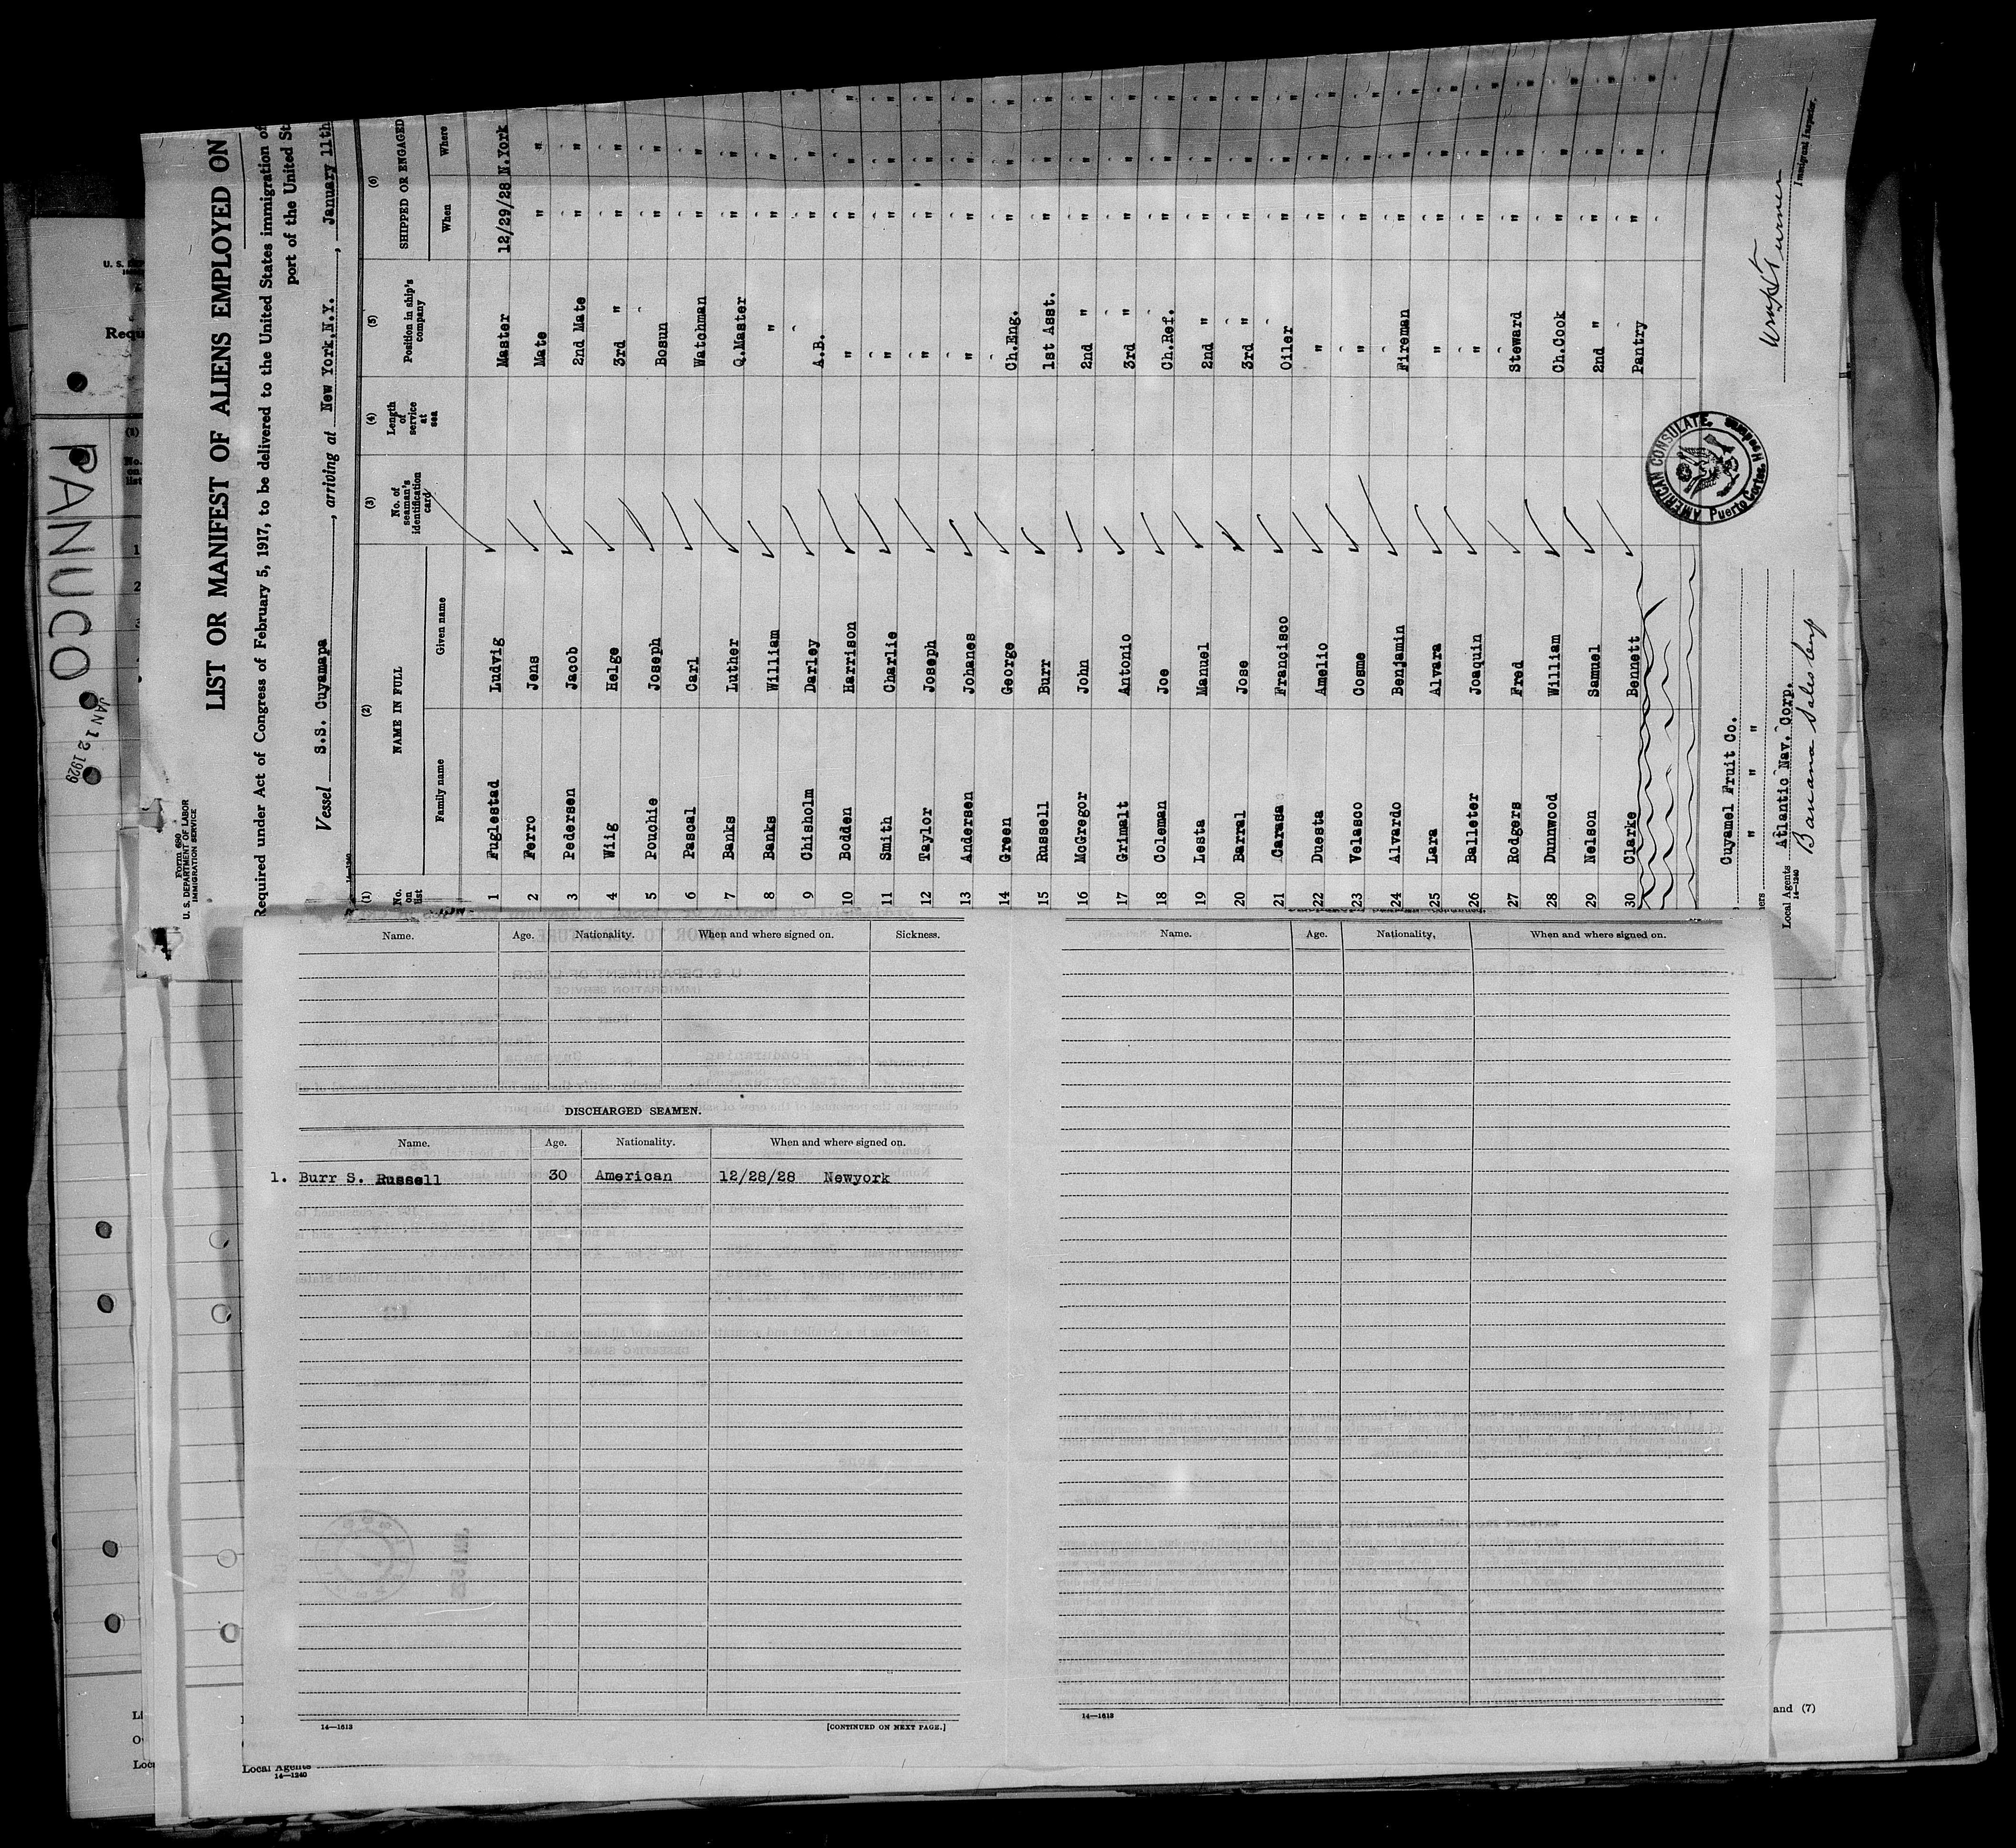 PANUCO
JAN 12 1929
Requ
(1)
No.
on
list
Form 680
U. S. DEPARTMENT OF LABOR
IMMIGRATION SERVICE
LIST OR MANIFEST OF ALIENS EMPLOYED ON
Required under Act of Congress of February 5, 1917, to be delivered to the United States immigration of
port of the United St
Vessel S.S. Cuyamapa, arriving at New York,N.Y., January 11th
14-1240
(1) (2) (3) (4) (5) (6)
No. on list NAME IN FULL No. of seaman's identification card Length of service at sea Position in ship's company SHIPPED OR ENGAGED
Family name Given name When Where
1 Fuglestad Ludvig Master 12/29/28 N.York
2 Ferro Jens Mate " "
3 Pedersen Jacob 2nd Mate " "
4 Wiig Helge 3rd " " "
5 Pouchie Joseph Bosun " "
6 Pascal Carl Watchman " "
7 Banks Luther Q.Master " "
8 Banks William " " "
9 Chisholm Darley A.B. " "
10 Bodden Harrison " " "
11 Smith Charlie " " "
12 Taylor Joseph " " "
13 Andersen Johanes " " "
14 Green George Ch.Eng. " "
15 Russell Burr 1st Asst. " "
16 McGregor John 2nd " " "
17 Grimalt Antonio 3rd " " "
18 Coleman Joe Ch.Ref. " "
19 Lesta Manuel 2nd " " "
20 Barral Jose 3rd " " "
21 Carasa Francisco Oiler " "
22 Duesta Amelio " " "
23 Velasco Cosme " " "
24 Alvardo Benjamin Fireman " "
25 Lara Alvara " " "
26 Balleter Joaquin " " "
27 Rodgers Fred Steward " "
28 Dunnwood William Ch.Cook " "
29 Nelson Samuel 2nd " " "
30 Clarke Bennett Pantry " "
AMERICAN CONSULATE.
Puerto Cortes, Honduras
Cuyamel Fruit Co.
" " "
Local Agents Atlantic Nav. Corp.
14-1240
Immigrant Inspector.
Name. Age. Nationality. When and where signed on. Sickness.
DISCHARGED SEAMEN.
Name. Age. Nationality. When and where signed on.
1. Burr S. Russell 30 American 12/28/28 Newyork
14—1613 [CONTINUED ON NEXT PAGE.]
Name. Age. Nationality, When and where signed on.
14—1613
and (7)
Local Agents
14—1240